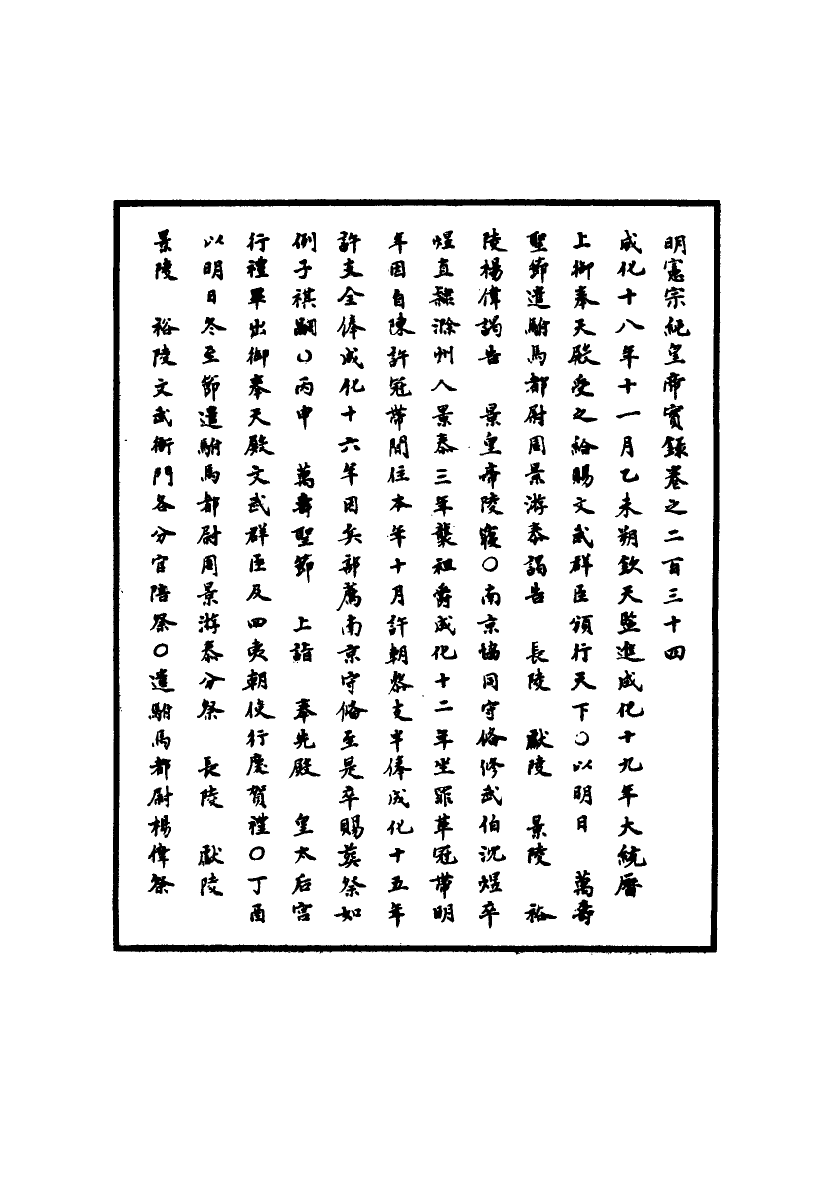 明憲宗純皇帝實錄卷之二百三十四
成化十八年十一月乙未朔欽天監進成化十九年大統曆
上御奉天殿受之給賜文武群臣頒行天下○以明日　萬壽
聖節遣駙馬都尉周景游泰謁告　長陵　獻陵　景陵　裕
陵楊偉謁告　景皇帝陵寢○南京協同守俻修武伯沈煜卒
煜直隸滁州人景泰三年襲祖爵成化十二年坐罪革冠帶明
年因自陳許冠帶閒住本年十月許朝叅支半俸成化十五年
許支全俸成化十六年因兵部薦南京守俻至是卒賜葬祭如
例子祺嗣○丙申　萬壽聖節　上詣　奉先殿　皇太后宮
行禮畢出御奉天殿文武群臣及四夷朝使行慶賀禮○丁酉
以明日冬至節遣駙馬都尉周景游泰分祭　長陵　獻陵
景陵　裕陵文武衙門各分官陪祭○遣駙馬都尉楊偉祭